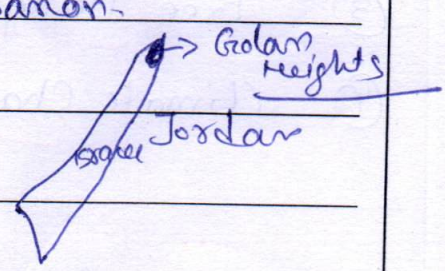 Golan
Heights
Jordan
Israel